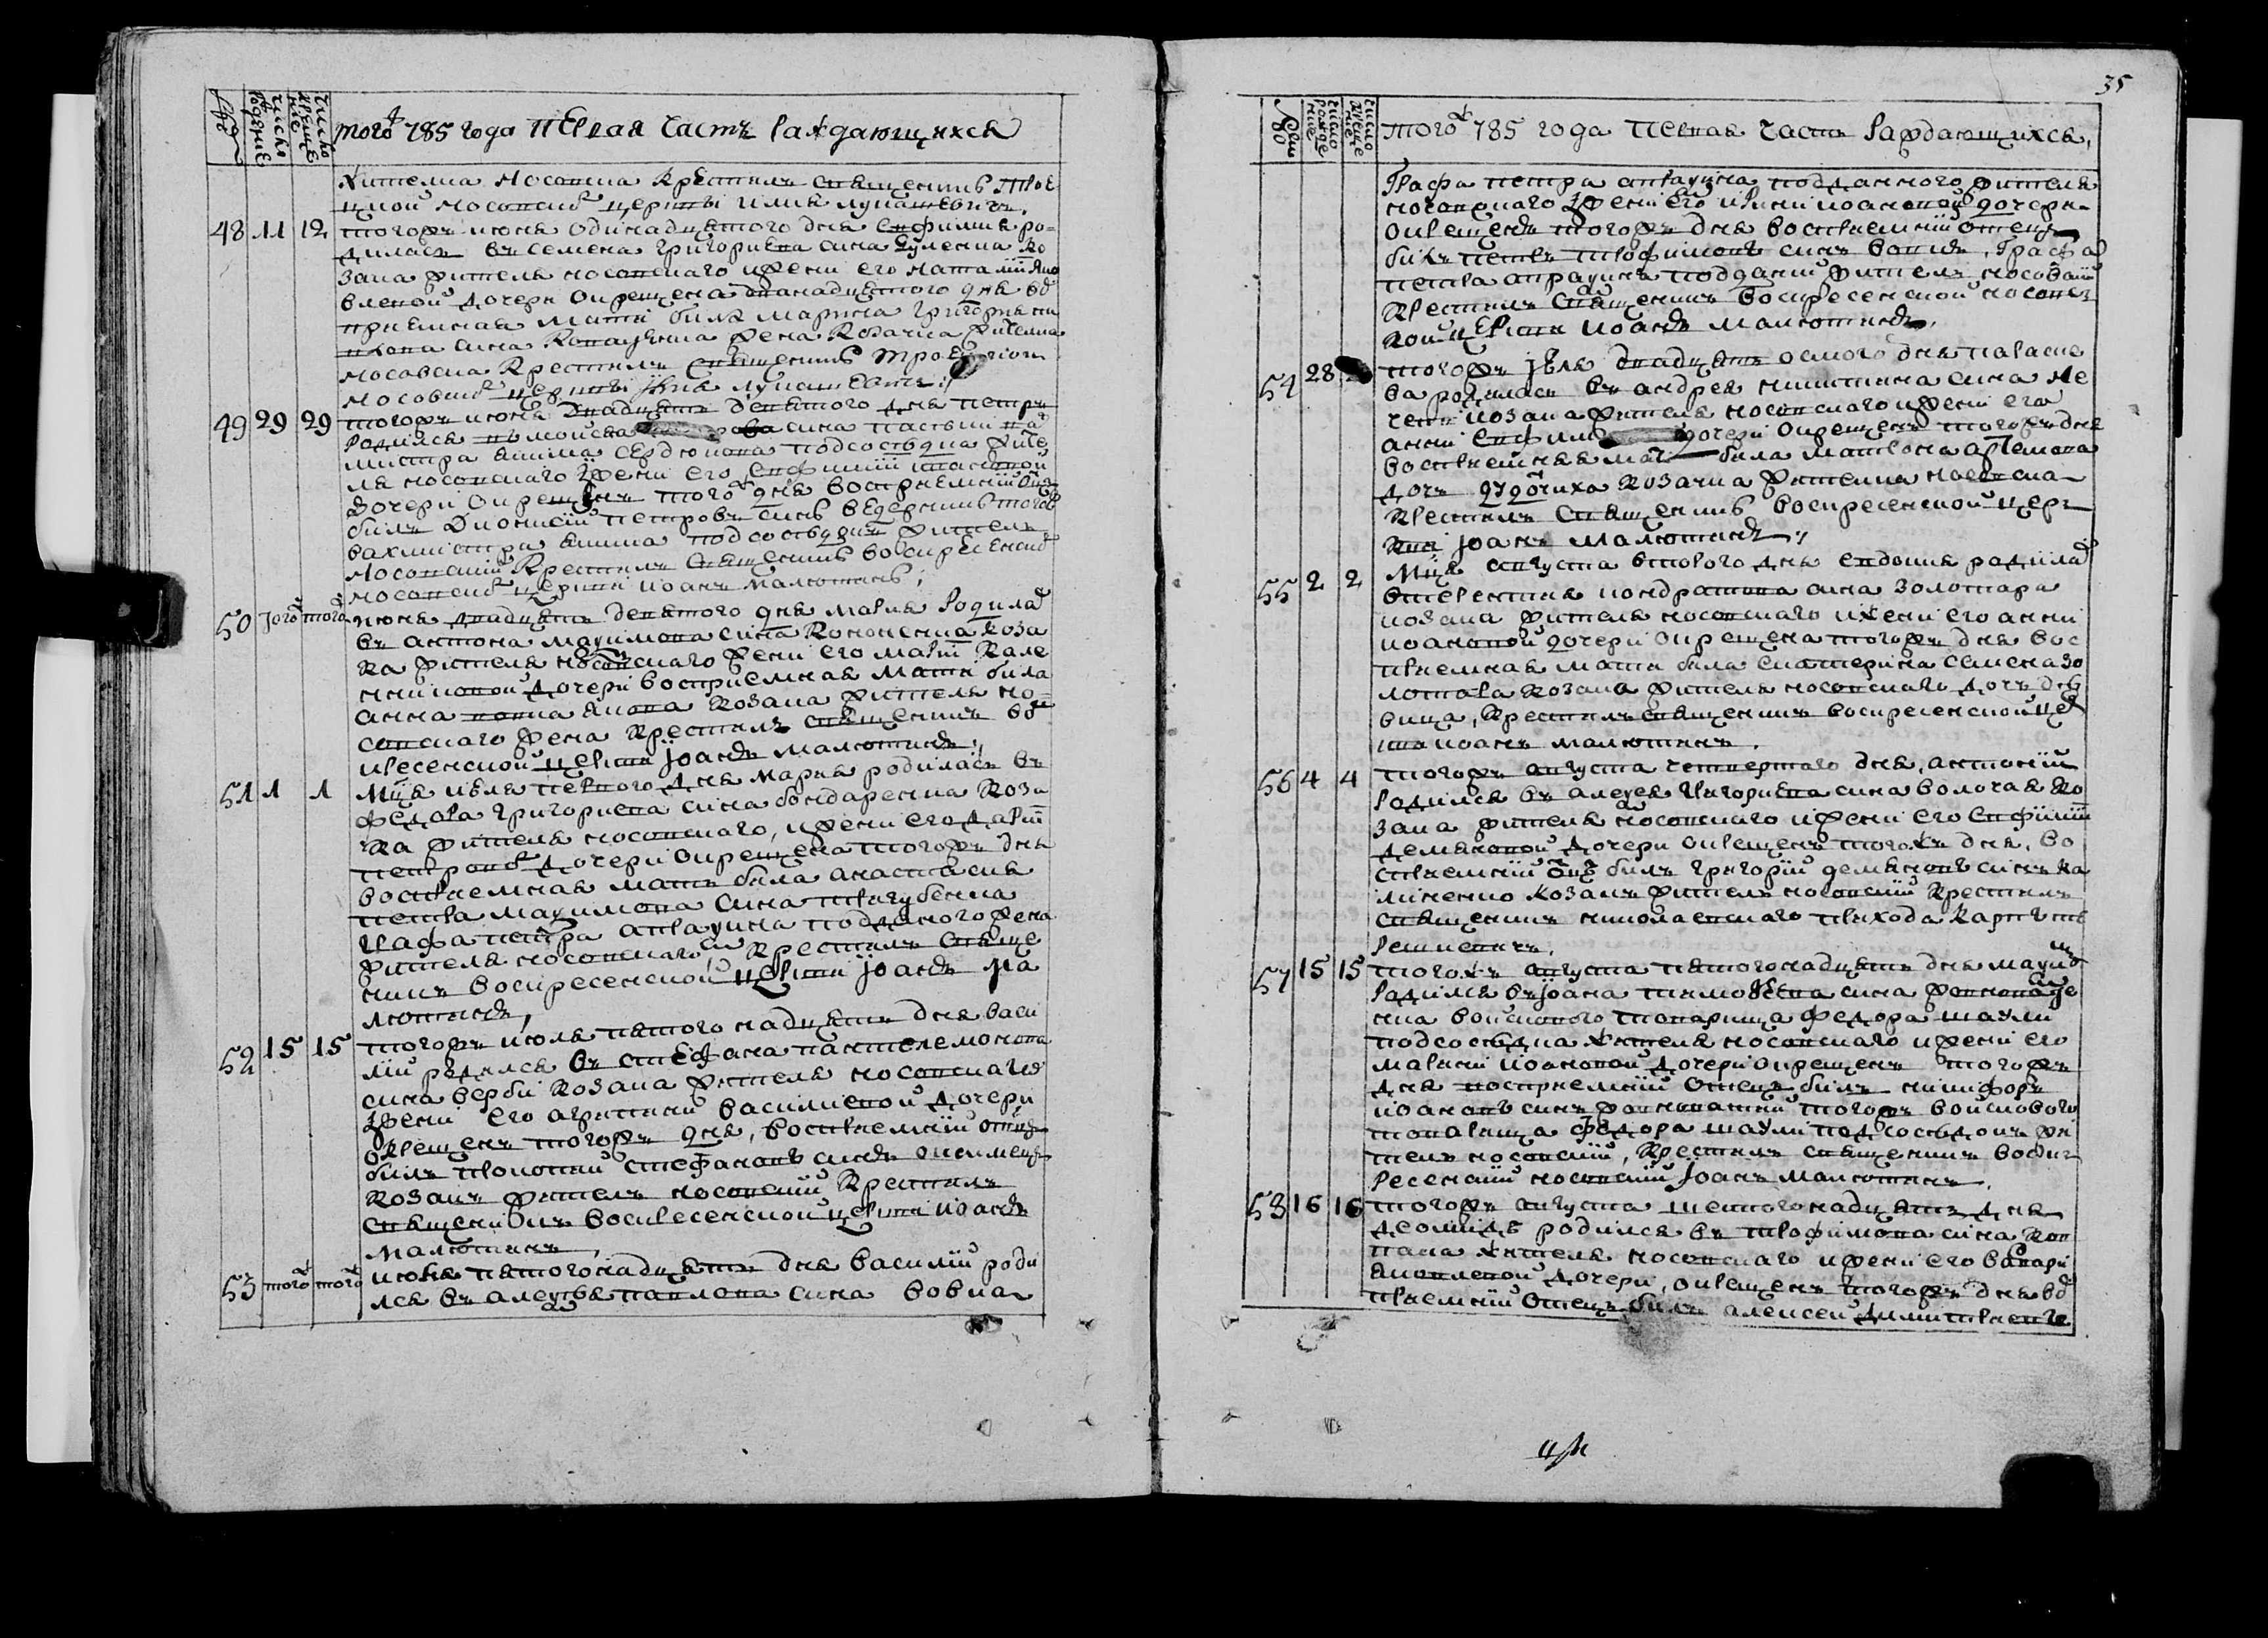 число рождение
число крещение
того ж 785 года первая часть раждающихся
жителка носовска крестилъ священникъ трое
цкой носовской церкви илия лукашевичъ.
48 11 12 тогожъ июня одинадцятого дня евфимия ро-
дилась въ семена григориева сина куленка ко
зака жителя носовского и жени его наталии яко
влевой дочери окрещена дванадцятого дня вос
приемная мати била марина григориева
сина жена козачка жителка
носовска крестилъ священникъ троецкой
носовской церкви илия лукашевичъ
49 29 29 тогожъ июня двадцять девятого дня петръ
родился въ мойсея сина
подсосѣдка жите
ля носовского жени его евфимии ивановой
дочери окрещенъ того ж дня восприемний отец
билъ дионисий петровъ синъ ведерникъ того ж
вахмистра якима подсосѣдокъ житель
носовский крестилъ священникъ воскресенской
носовской церкви иоанъ малютинъ;
50 того ж того ж июня двадцять девятого дня мария родилас
въ антона максимова сина кононенка коза
ка жителя носовского жени его марии кале
никовой дочери восприемная мати била
анна якова козака жителя но-
совского жена крестилъ священникъ вос
кресенской церкви иоанъ малютинъ;
51 1 1 мца июля первого дня мария родилась въ
федора григориева сина бондаренка коза
ка жителя носовского, и жени его дарии
петровой дочери окрещена тогожъ дня
восприемная мать била анастасия
петра максимова сина пригубенка
графа петра апраксина подданого жена
жителя носовского, крестилъ священ
никъ воскресенской церкви иоанъ ма
лютинъ,
52 15 15 тогожъ июля пятого надцять дня васи
лий родился въ стефана пантелемонова
сина верби козака жителя носовского
жени его агрипини василиевой дочери
окрещенъ тогожъ дня, восприемний отецъ
билъ прокопий стефановъ синъ
козакъ житель носовский крестилъ
священникъ воскресенской церкви иоанъ
малютинъ,
53 того ж того ж июля пятогонадцять дня василий роди
лся въ алексѣя павлова сина вовка
35
число рождение
число крещение
того ж 785 года первая часть раждающихся,
графа петра апраксина подданного жителя
носовского жени его ирини иоановой дочери
окрещенъ тогожъ дня восприемний отецъ
билъ петръ трофимовъ синъ вовкъ, графа
петра апраксина подданий житель носовский
крестилъ священникъ воскресенской носовс
кой церкви иоанъ малютинъ,
54 28 тогожъ июля двадцять осмого дня параске
ва родилась въ андрея никитина сина
козака жителя носовского и жени его
анни евфим дочери окрещена тогожъ дня
восприемная мати била матрона артемова
дочь козачка жителка носовска
крестилъ священникъ воскресенской церк
ви иоанъ малютинъ;
55 2 2 мца августа второго дня евдокия родилас
в терентия кондратова сина золотара
козака жителя носовского и жени его анни
иоановой дочери окрещена тогожъ дня вос
приемная мати била екатерина семена зо
лотара козака жителя носовского дочь дѣ
вица, крестилъ священникъ воскресенской цер
кви иоанъ малютинъ.
56 4 4 тогожъ августа четвертого дня, антоний
родился въ алексея григориева сина волочая ко
зака жителя носовского и жени его евфимии
демяновой дочери окрещенъ тогожъ дня, во
сприемний отцъ билъ григорий демяновъ синъ ка
линенко козакъ житель носовский крестилъ
священникъ николаевского прихода карпъ те
решкевичъ.
57 15 15 тогожъ августа пятогонадцять дня максим
родился въ иоана тимофеева сина
нка войскового товарища федора шаули
подсосѣдка жителя носовского и жени его
марини иоановой дочери окрещенъ тогожъ
дня восприемний отецъ билъ никифоръ
иоановъ синъ тогожъ войскового
товарища федора шаули подсосѣдокъ жи
тель носовский, крестилъ священникъ воск
ресенский носовский иоанъ малютинъ.
58 16 16 тогожъ августа шестогонадцять дня
деомидъ родился въ трофимова сина ков
пака жителя носовского и жени его варвари
яковлевой дочери, окрещенъ тогожъ дня вос
приемний отецъ билъ алексей димитриевъ